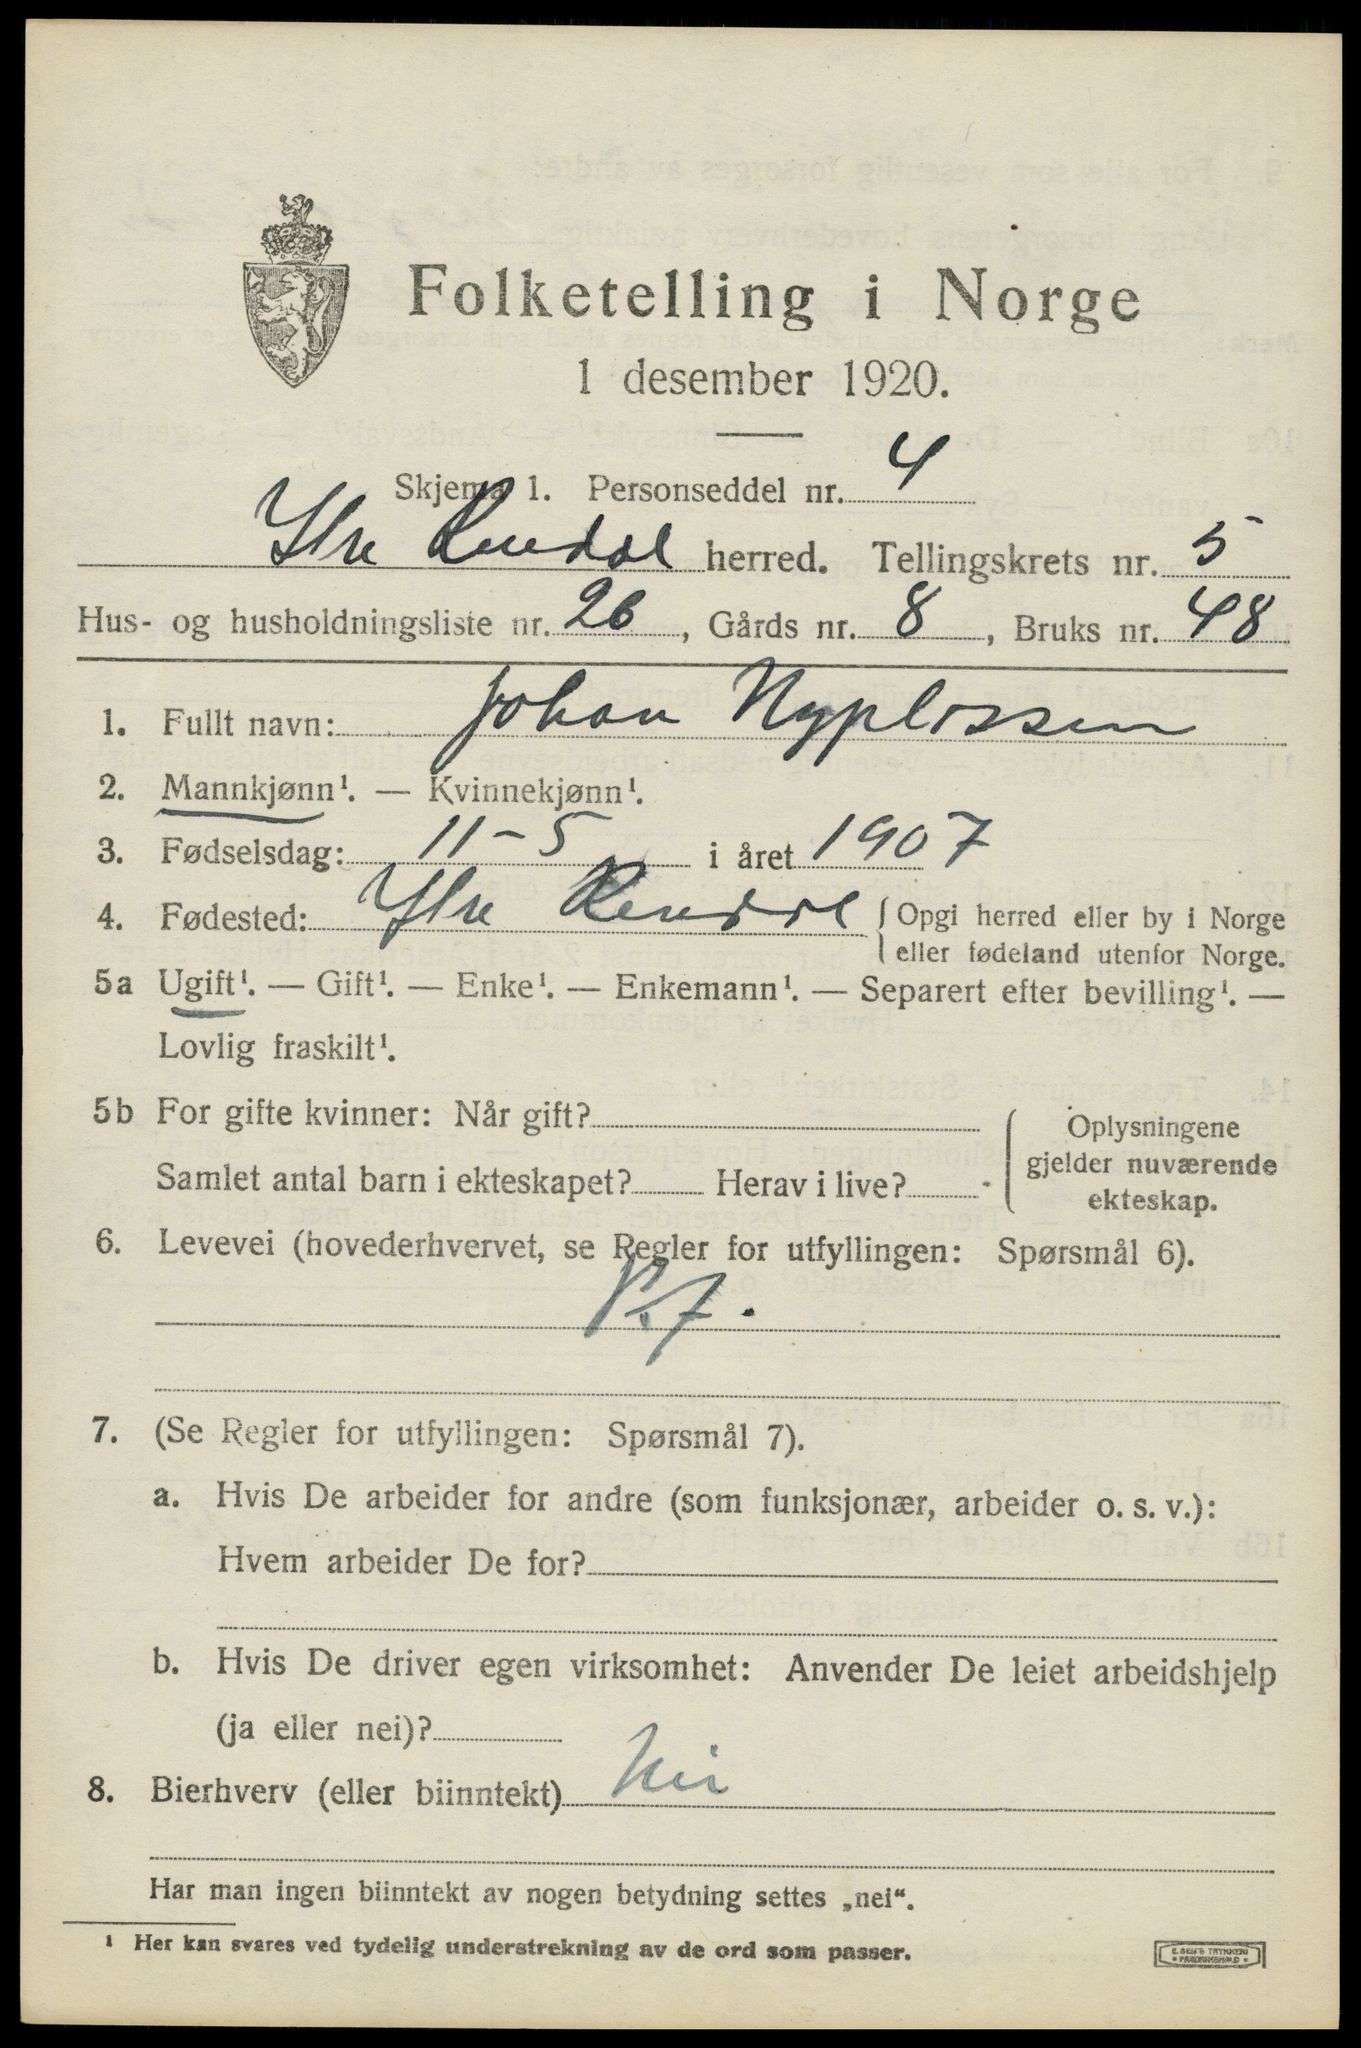 Folketelling i Norge
1 desember 1920.
Skjema 1. Personseddel nr. 4
Ytre Rendal herred. Tellingskrets nr. 5
Hus- og husholdningsliste nr. 26, Gårds nr. 8, Bruks nr. 48
1. Fullt navn: Johan Nyplassen
2. Mannkjønn¹. — Kvinnekjønn¹.
3. Fødselsdag: 11-5 i året 1907
4. Fødested: Ytre Rendal { Opgi herred eller by i Norge
eller fødeland utenfor Norge.
5a Ugift¹. — Gift¹. — Enke¹. — Enkemann¹. — Separert efter bevilling¹. —
Lovlig fraskilt¹.
5b For gifte kvinner: Når gift?
Samlet antal barn i ekteskapet? Herav i live?
Oplysningene
gjelder nuværende
ekteskap.
6. Levevei (hovederhvervet, se Regler for utfyllingen: Spørsmål 6).
7. (Se Regler for utfyllingen: Spørsmål 7).
a. Hvis De arbeider for andre (som funksjonær, arbeider o. s. v.):
Hvem arbeider De for?
b. Hvis De driver egen virksomhet: Anvender De leiet arbeidshjelp
(ja eller nei)?
8. Bierhverv (eller biinntekt) Nei
Har man ingen biinntekt av nogen betydning settes „nei“.
¹ Her kan svares ved tydelig understrekning av de ord som passer.